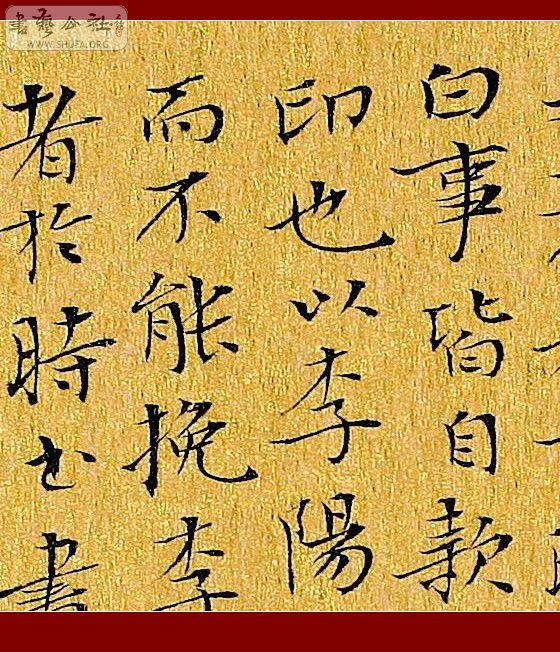 書藝公社
WWW.SHUFA.ORG
白事皆自款
印也以李陽
而不能挽李
者於時書